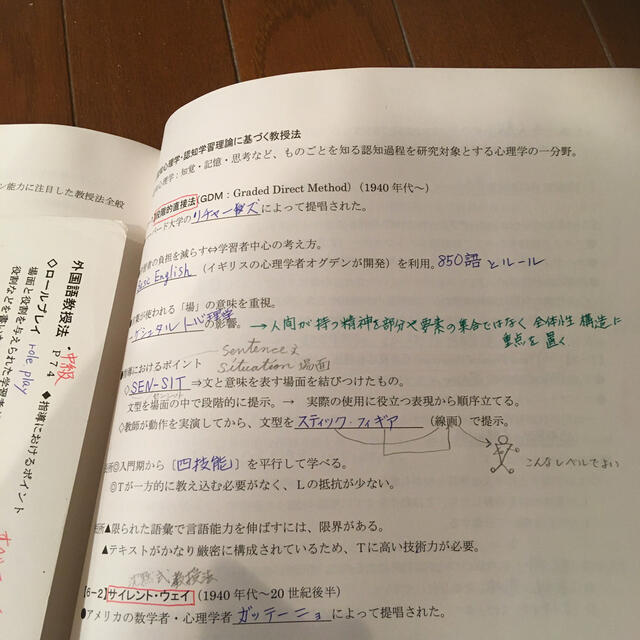 ン能力に注目した教授法全般
外国語教授法・中級
P74
◇ロールプレイ role play
◆指導におけるポイント
場面と役割を与えられた学習
心理学・認知学習理論に基づく教授法
心理学：知覚・記憶・思考など、ものごとを知る認知過程を研究対象とする心理学の一分野。
段階的直接法(GDM：Graded Direct Method)（1940年代～）
バード大学のリチャーズによって提唱された。
者の負担を減らす⇔学習者中心の考え方。
English（イギリスの心理学者オグデンが開発）を利用。850語とルール
が使われる「場」の意味を重視。
ゲシュタルト心理学の影響。→人間が持つ精神を部分や要素の集合ではなく全体性構造に
重点を置く
sentence文
導におけるポイント
Situation場面
◇SEN-SIT⇒文と意味を表す場面を結びつけたもの。
センシット
文型を場面の中で段階的に提示。→ 実際の使用に役立つ表現から順序立てる。
◇教師が動作を実演してから、文型をスティック・フィギア（線画）で提示。
こんなレベルでよい
所◎入門期から［四技能］を平行して学べる。
◎Tが一方的に教え込む必要がなく、Lの抵抗が少ない。
所▲限られた語彙で言語能力を伸ばすには、限界がある。
▲テキストがかなり厳密に構成されているため、Tに高い技術力が必要。
式教授法
【6-2】サイレント・ウェイ（1940年代～20世紀後半）
●アメリカの数学者・心理学者ガッテーニョによって提唱された。